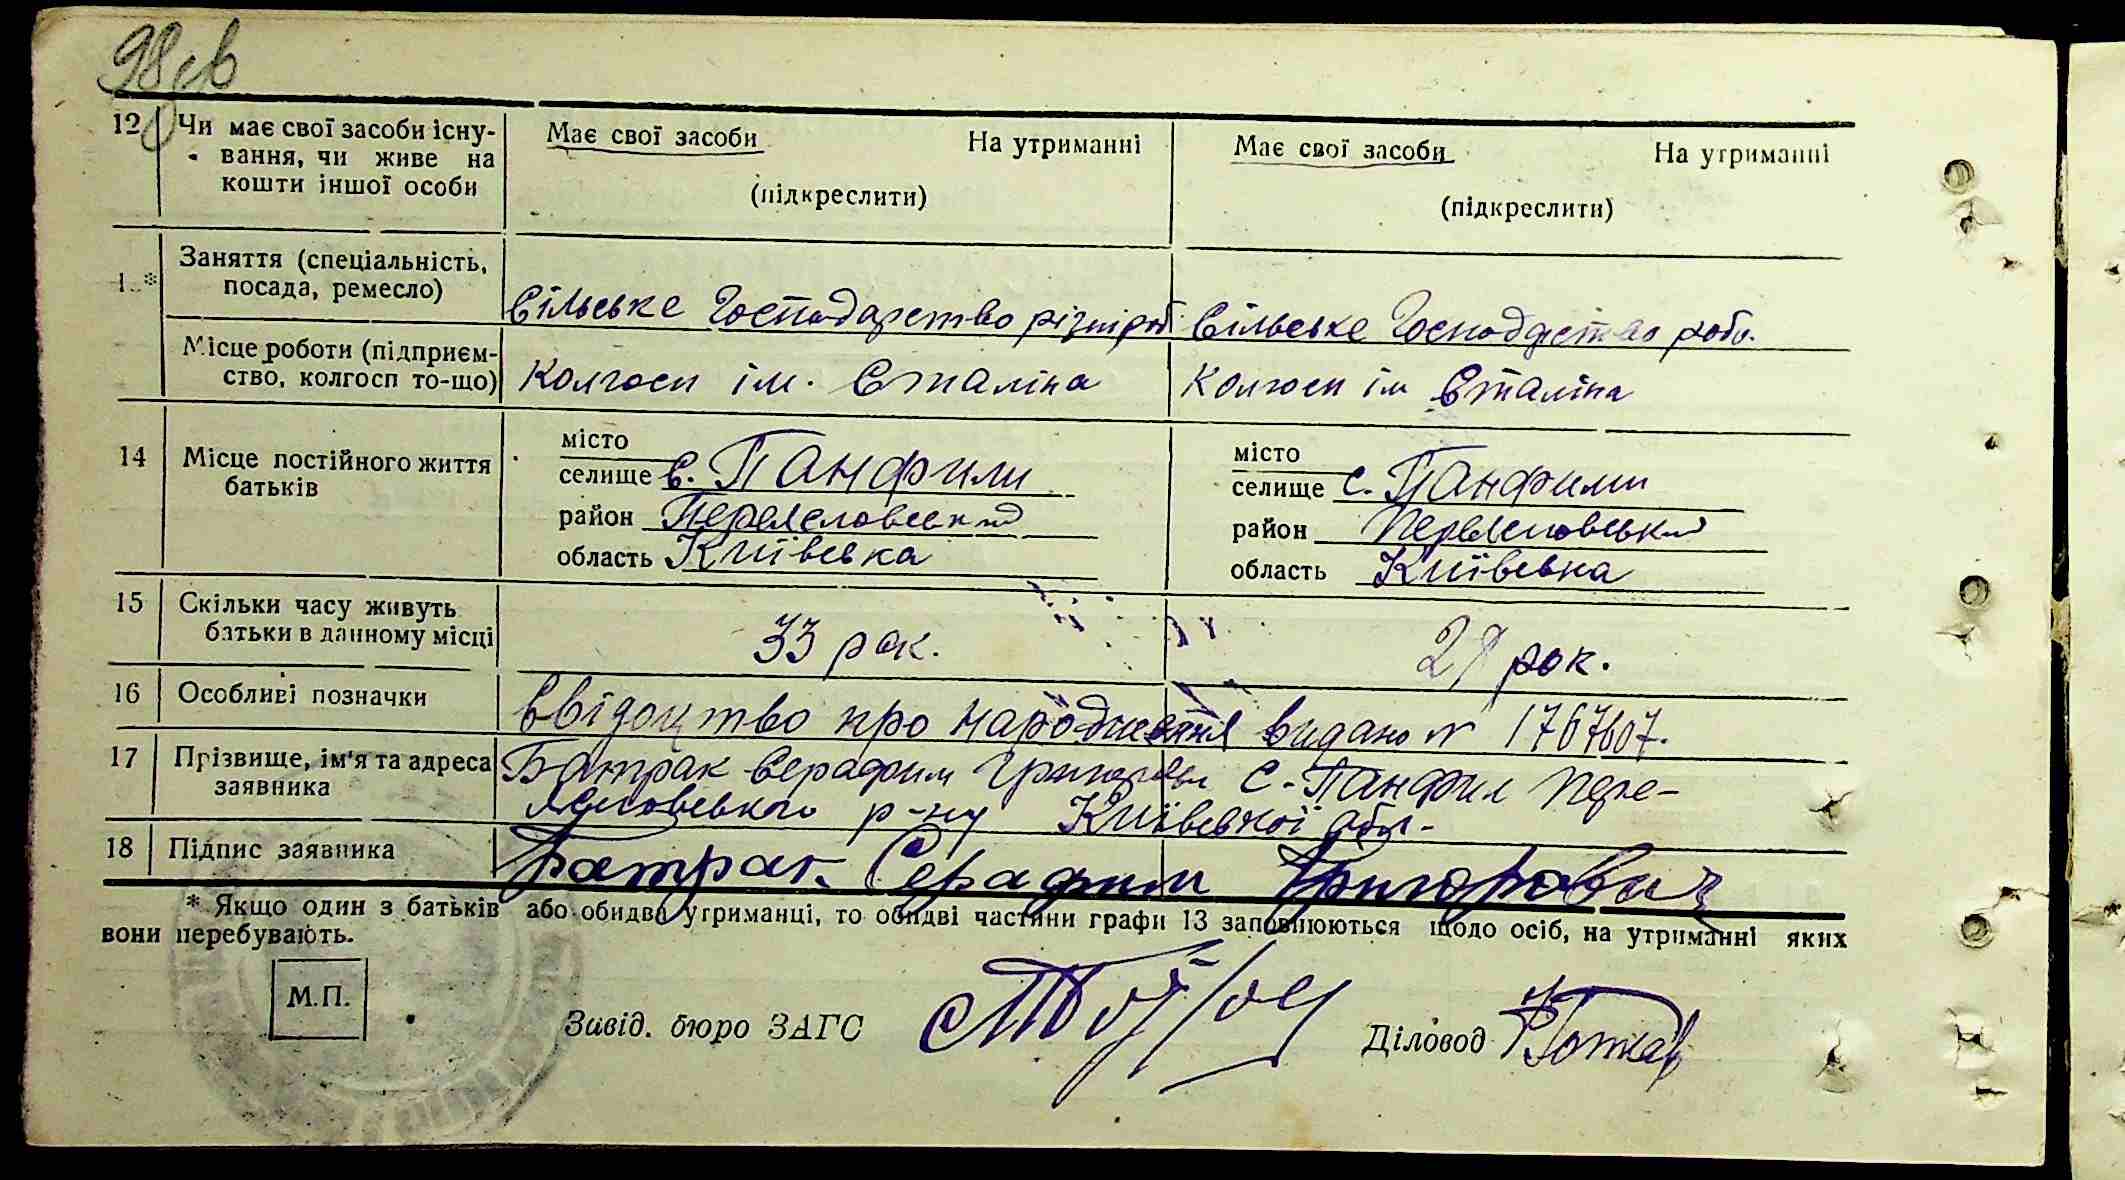 98зв
12 Чи має свої засоби існу-
вання, чи живе на
кошти іншої особи
Має свої засоби На утриманні
(підкреслити)
Має свої засоби На утриманні
(підкреслити)
1..* Заняття (спеціальність,
посада, ремесло)
Сільське Господарство різнороб
Сільське Господрство робо.
Місце роботи (підприєм-
ство, колгосп то-що)
Колгосп ім. Сталіна
Колгосп ім Сталіна
14 Місце постійного життя
батьків
місто
селище с. Панфили
район
область Київська
місто
селище с. Панфили
район
область Київська
15 Скільки часу живуть
батьки в данному місці
33 рок.
рок.
16 Особливі позначки
Свідоцтво про народження видано № 1767607.
17 Прізвище, ім'я та адреса
заявника
Батрак Серафим с. Панфил Пере-
р-ну Київської обл.
18 Підпис заявника
Батрак Серафим Григорович
* Якщо один з батьків або обидва утриманці, то обидві частини графи 13 заповнюються щодо осіб, на утриманні яких
вони перебувають.
М.П.
Завід. бюро ЗАГС
Діловод